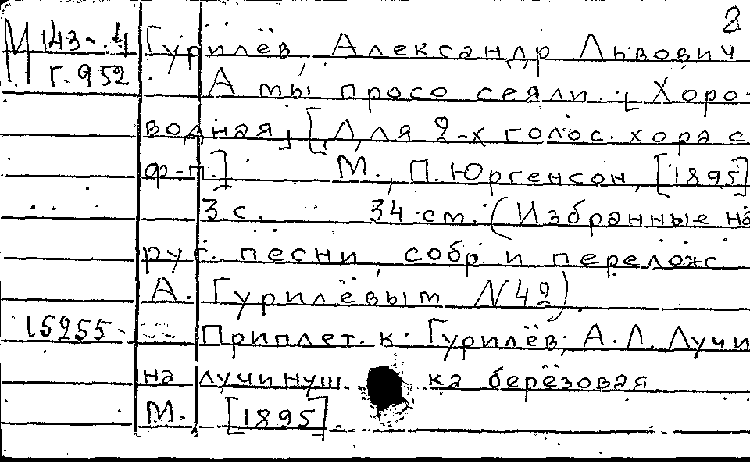 2
М 143-4 Гурилёв, Александр Львович
Г.952 А мы просо сеяли. [Хоро-
водная]. [Для 2-х голос. хора с
ф-п.] М., П. Юргенсон, [1895]
3 с. 34 см. (Избранные на
рус. песни, собр и перелож
А. Гурилёвым N42)
15255 Приплет. к: Гурилёв, А. Л. Лучи
на лучинуш ка берёзовая
М. [1895].